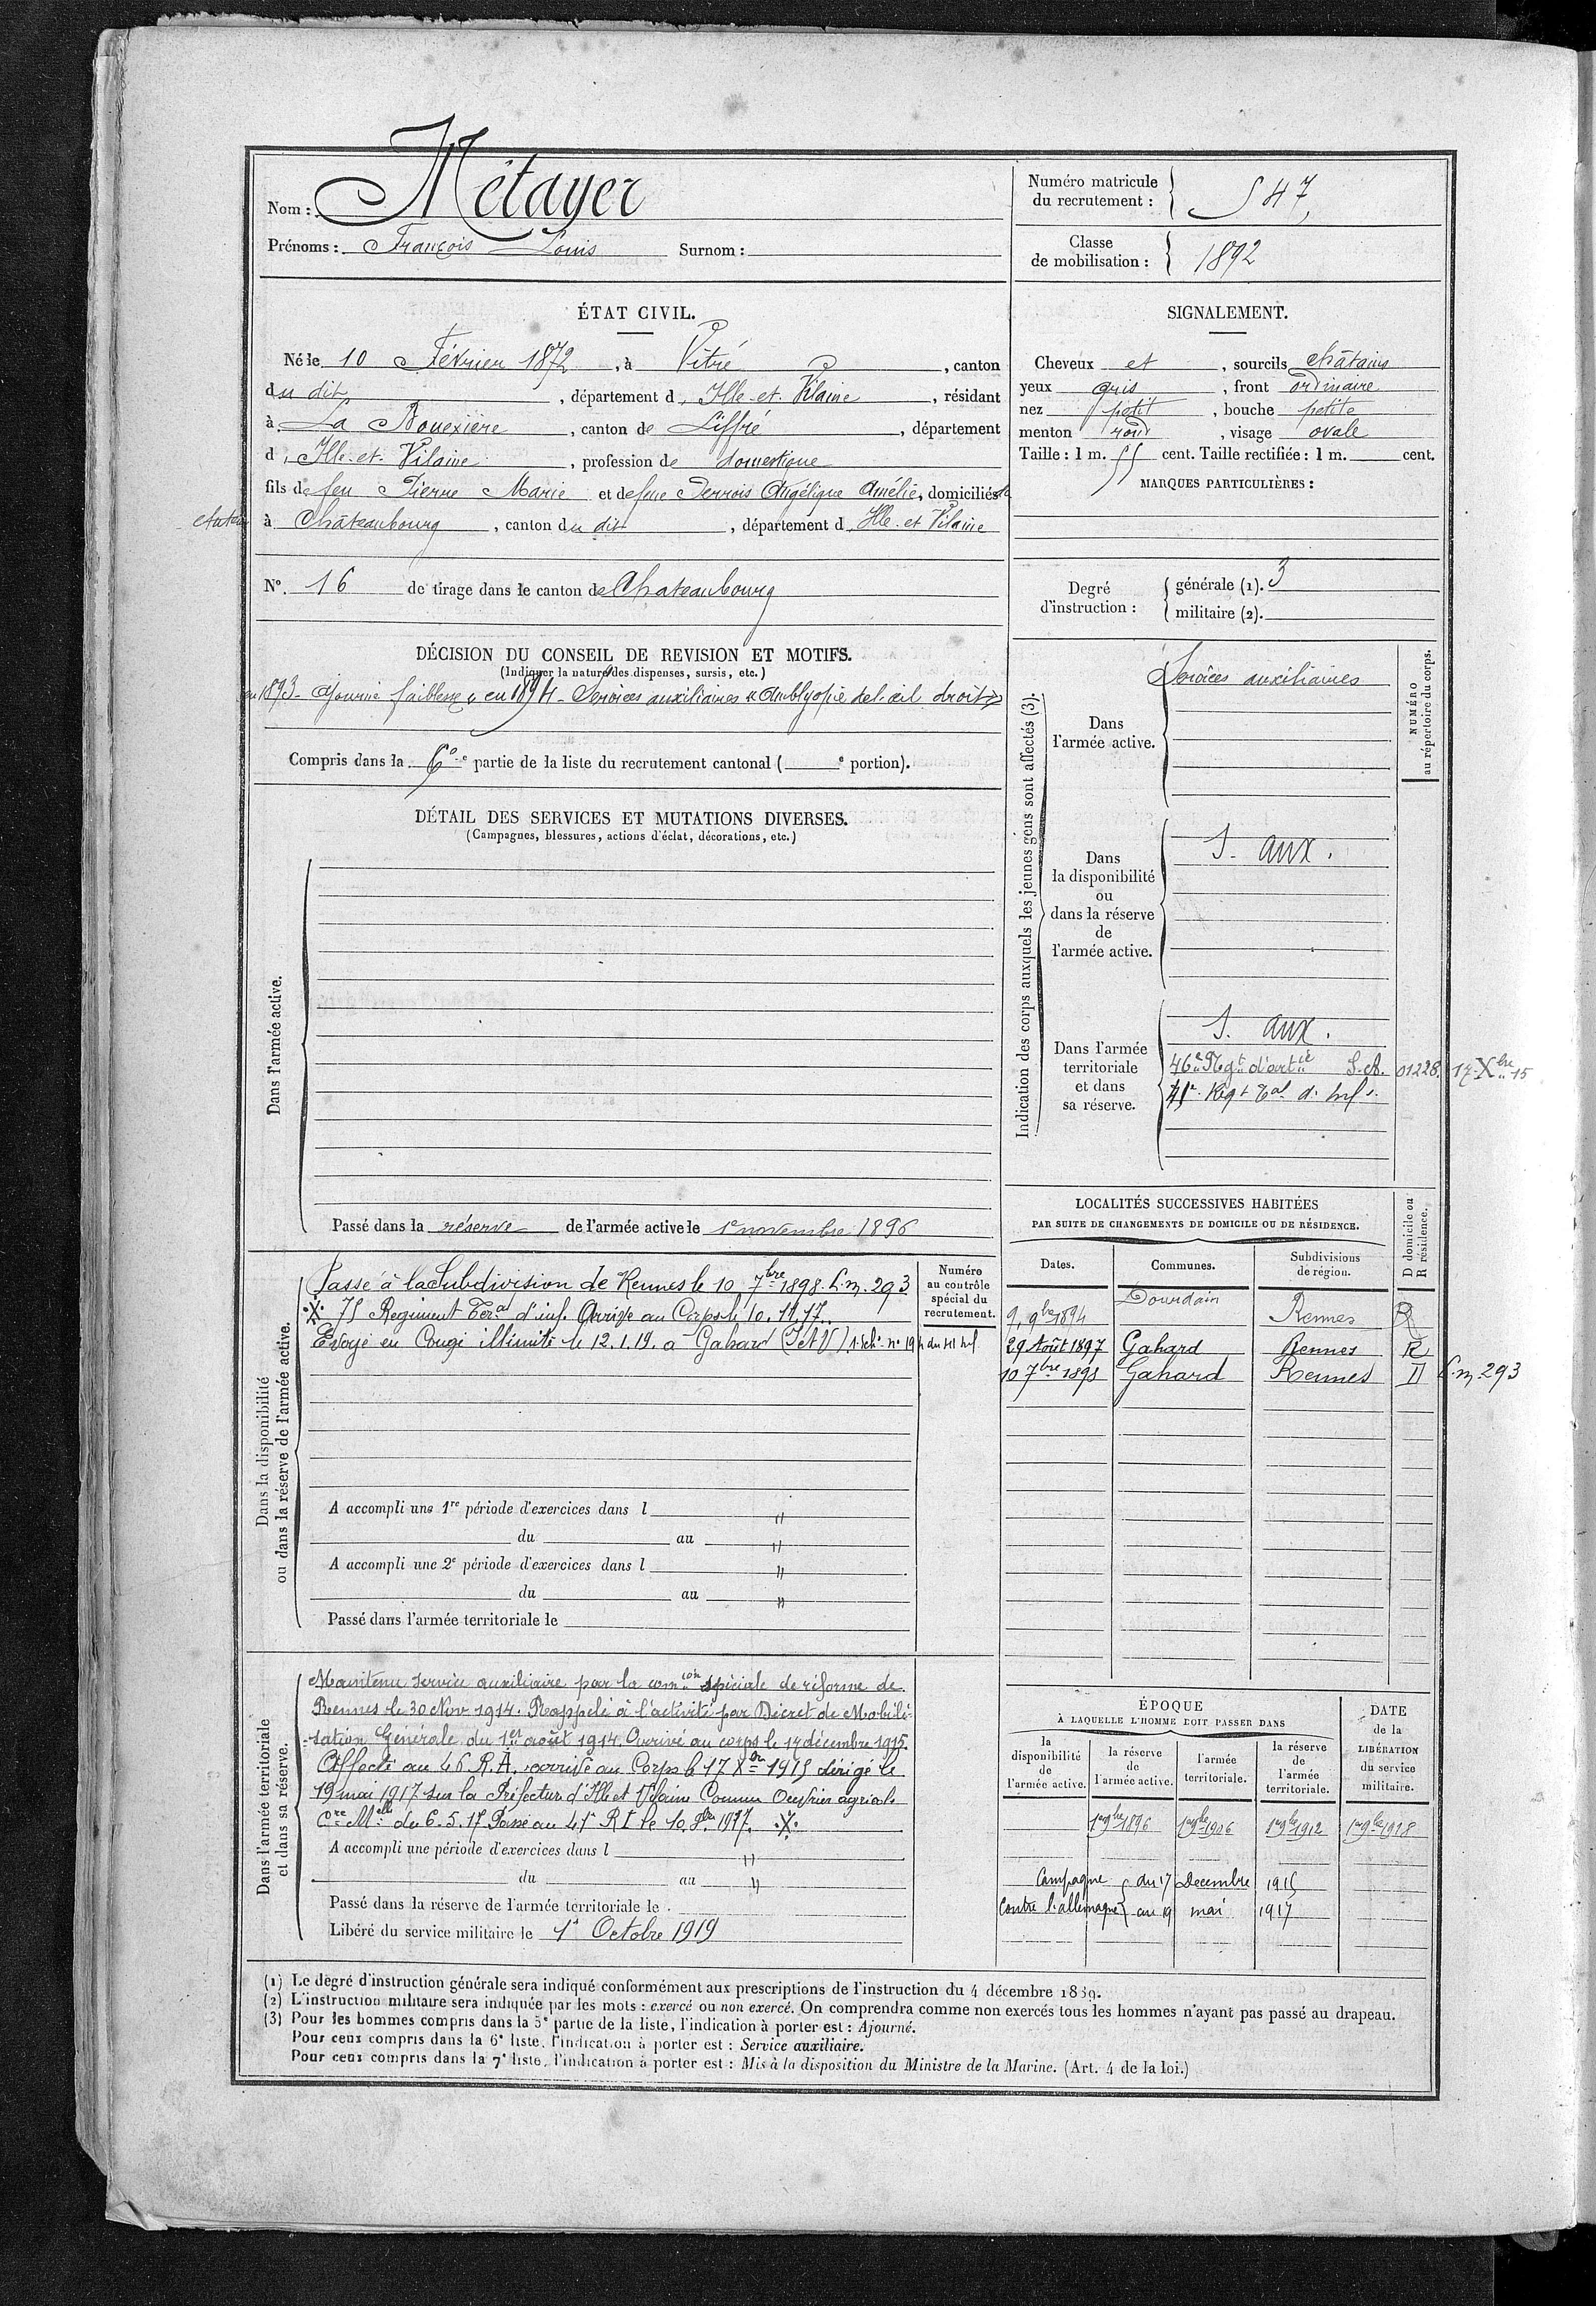 Nom : Métayer
Prénoms : François Louis Surnom :
Numéro matricule du recrutement : 547
Classe de mobilisation : 1892
ÉTAT CIVIL.
Né le 10 Février 1872, à Vitré, canton
du dit, département d'Ille-et-Vilaine, résidant
à La Bouëxière, canton de Liffré, département
d'Ille-et-Vilaine, profession de domestique
fils de feu Pierre Marie et de feue Derrois Angélique Amélie, domiciliés
à Châteaubourg, canton du dit, département d'Ille-et-Vilaine
N° 16 de tirage dans le canton de Chateaubourg
SIGNALEMENT.
Cheveux et, sourcils châtains
yeux gris, front ordinaire
nez petit, bouche petite
menton rond, visage ovale
Taille : 1 m. 55 cent. Taille rectifiée : 1 m. cent.
MARQUES PARTICULIÈRES :
Degré d'instruction :
générale (1). 3
militaire (2).
DÉCISION DU CONSEIL DE REVISION ET MOTIFS.
(Indiquer la nature des dispenses, sursis, etc.)
en 1893 - ajourné faiblesse, en 1894 - Services auxiliaires « amblyopie de l'œil droit »
Compris dans la 6e partie de la liste du recrutement cantonal ( e portion).
DÉTAIL DES SERVICES ET MUTATIONS DIVERSES.
(Campagnes, blessures, actions d'éclat, décorations, etc.)
Dans l'armée active.
Passé dans la réserve de l'armée active le 1er novembre 1896
Indication des corps auxquels les jeunes gens sont affectés (3).
NUMÉRO au répertoire du corps.
Dans l'armée active.
Services auxiliaires
Dans la disponibilité ou dans la réserve de l'armée active.
S. aux.
Dans l'armée territoriale et dans sa réserve.
S. aux.
46e Rgt d'artie S.A. 01228. 17-Xbre 15
41e Regt Tal d'Inf.
Dans la disponibilité ou dans la réserve de l'armée active.
Numéro au contrôle spécial du recrutement.
Passé à la Subdivision de Rennes le 10 7bre 1898. L.m. 293
.X. 75 Regiment Teral d'inf. Arrivé au Corps le 10.11.17.
Envoyé en Congé illimité le 12.1.19. à Gahard (I et V) 1. Ech. n° 19 du 41 Inf
A accompli une 1re période d'exercices dans l "
du au "
A accompli une 2e période d'exercices dans l "
du au "
Passé dans l'armée territoriale le
LOCALITÉS SUCCESSIVES HABITÉES
PAR SUITE DE CHANGEMENTS DE DOMICILE OU DE RÉSIDENCE.
D domicile ou R résidence.
Dates. Communes. Subdivisions de région.
9. 9bre 1894 Dourdain Rennes R
29 Août 1897 Gahard Rennes R
10 7bre 1898 Gahard Rennes D L.m. 293
Dans l'armée territoriale et dans sa réserve.
Maintenu service auxiliaire par la comon spéciale de réforme de
Rennes le 30 Nov 1914. Rappelé à l'activité par Décret de Mobili-
sation Générale du 1er août 1914. Arrivé au corps le 17 décembre 1915.
Affecté au 46 R.A. arrivé au Corps le 17 Xbre 1915 dirigé le
19 mai 1917 sur la Préfecture d'Ille et Vilaine Comme Ouvrier agricole
Cre Mlle du 6.5.17 Passé au 41e R I le 10. 1917. .X.
A accompli une période d'exercices dans l "
du au "
Passé dans la réserve de l'armée territoriale le
Libéré du service militaire le 1er Octobre 1919
ÉPOQUE
À LAQUELLE L'HOMME DOIT PASSER DANS
la disponibilité de l'armée active. la réserve de l'armée active. l'armée territoriale. la réserve de l'armée territoriale.
DATE de la LIBÉRATION du service militaire.
1er 9bre 1896 1er 9bre 1906 1er 9bre 1912 1er 9bre 1918
Campagne du 17 Decembre 1915
Contre l'allemagne au 19 mai 1917
(1) Le degré d'instruction générale sera indiqué conformément aux prescriptions de l'instruction du 4 décembre 1889.
(2) L'instruction militaire sera indiquée par les mots : exercé ou non exercé. On comprendra comme non exercés tous les hommes n'ayant pas passé au drapeau.
(3) Pour les hommes compris dans la 5e partie de la liste, l'indication à porter est : Ajourné.
Pour ceux compris dans la 6e liste, l'indication à porter est : Service auxiliaire.
Pour ceux compris dans la 7e liste, l'indication à porter est : Mis à la disposition du Ministre de la Marine. (Art. 4 de la loi.)